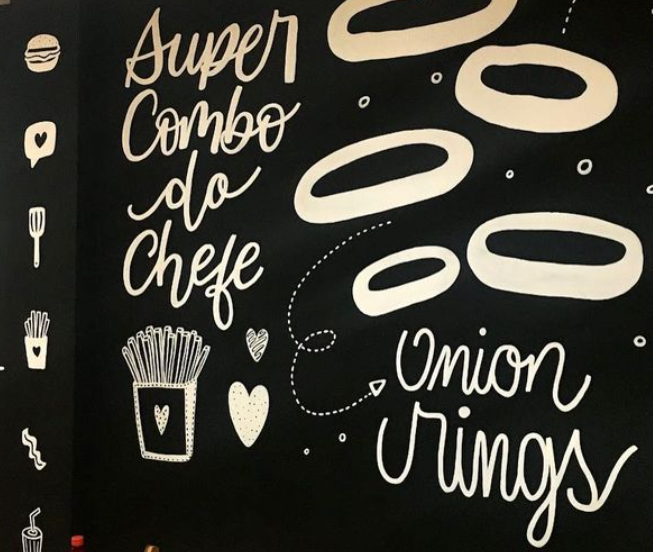 Super
Combo
do
Chefe
Onion
rings